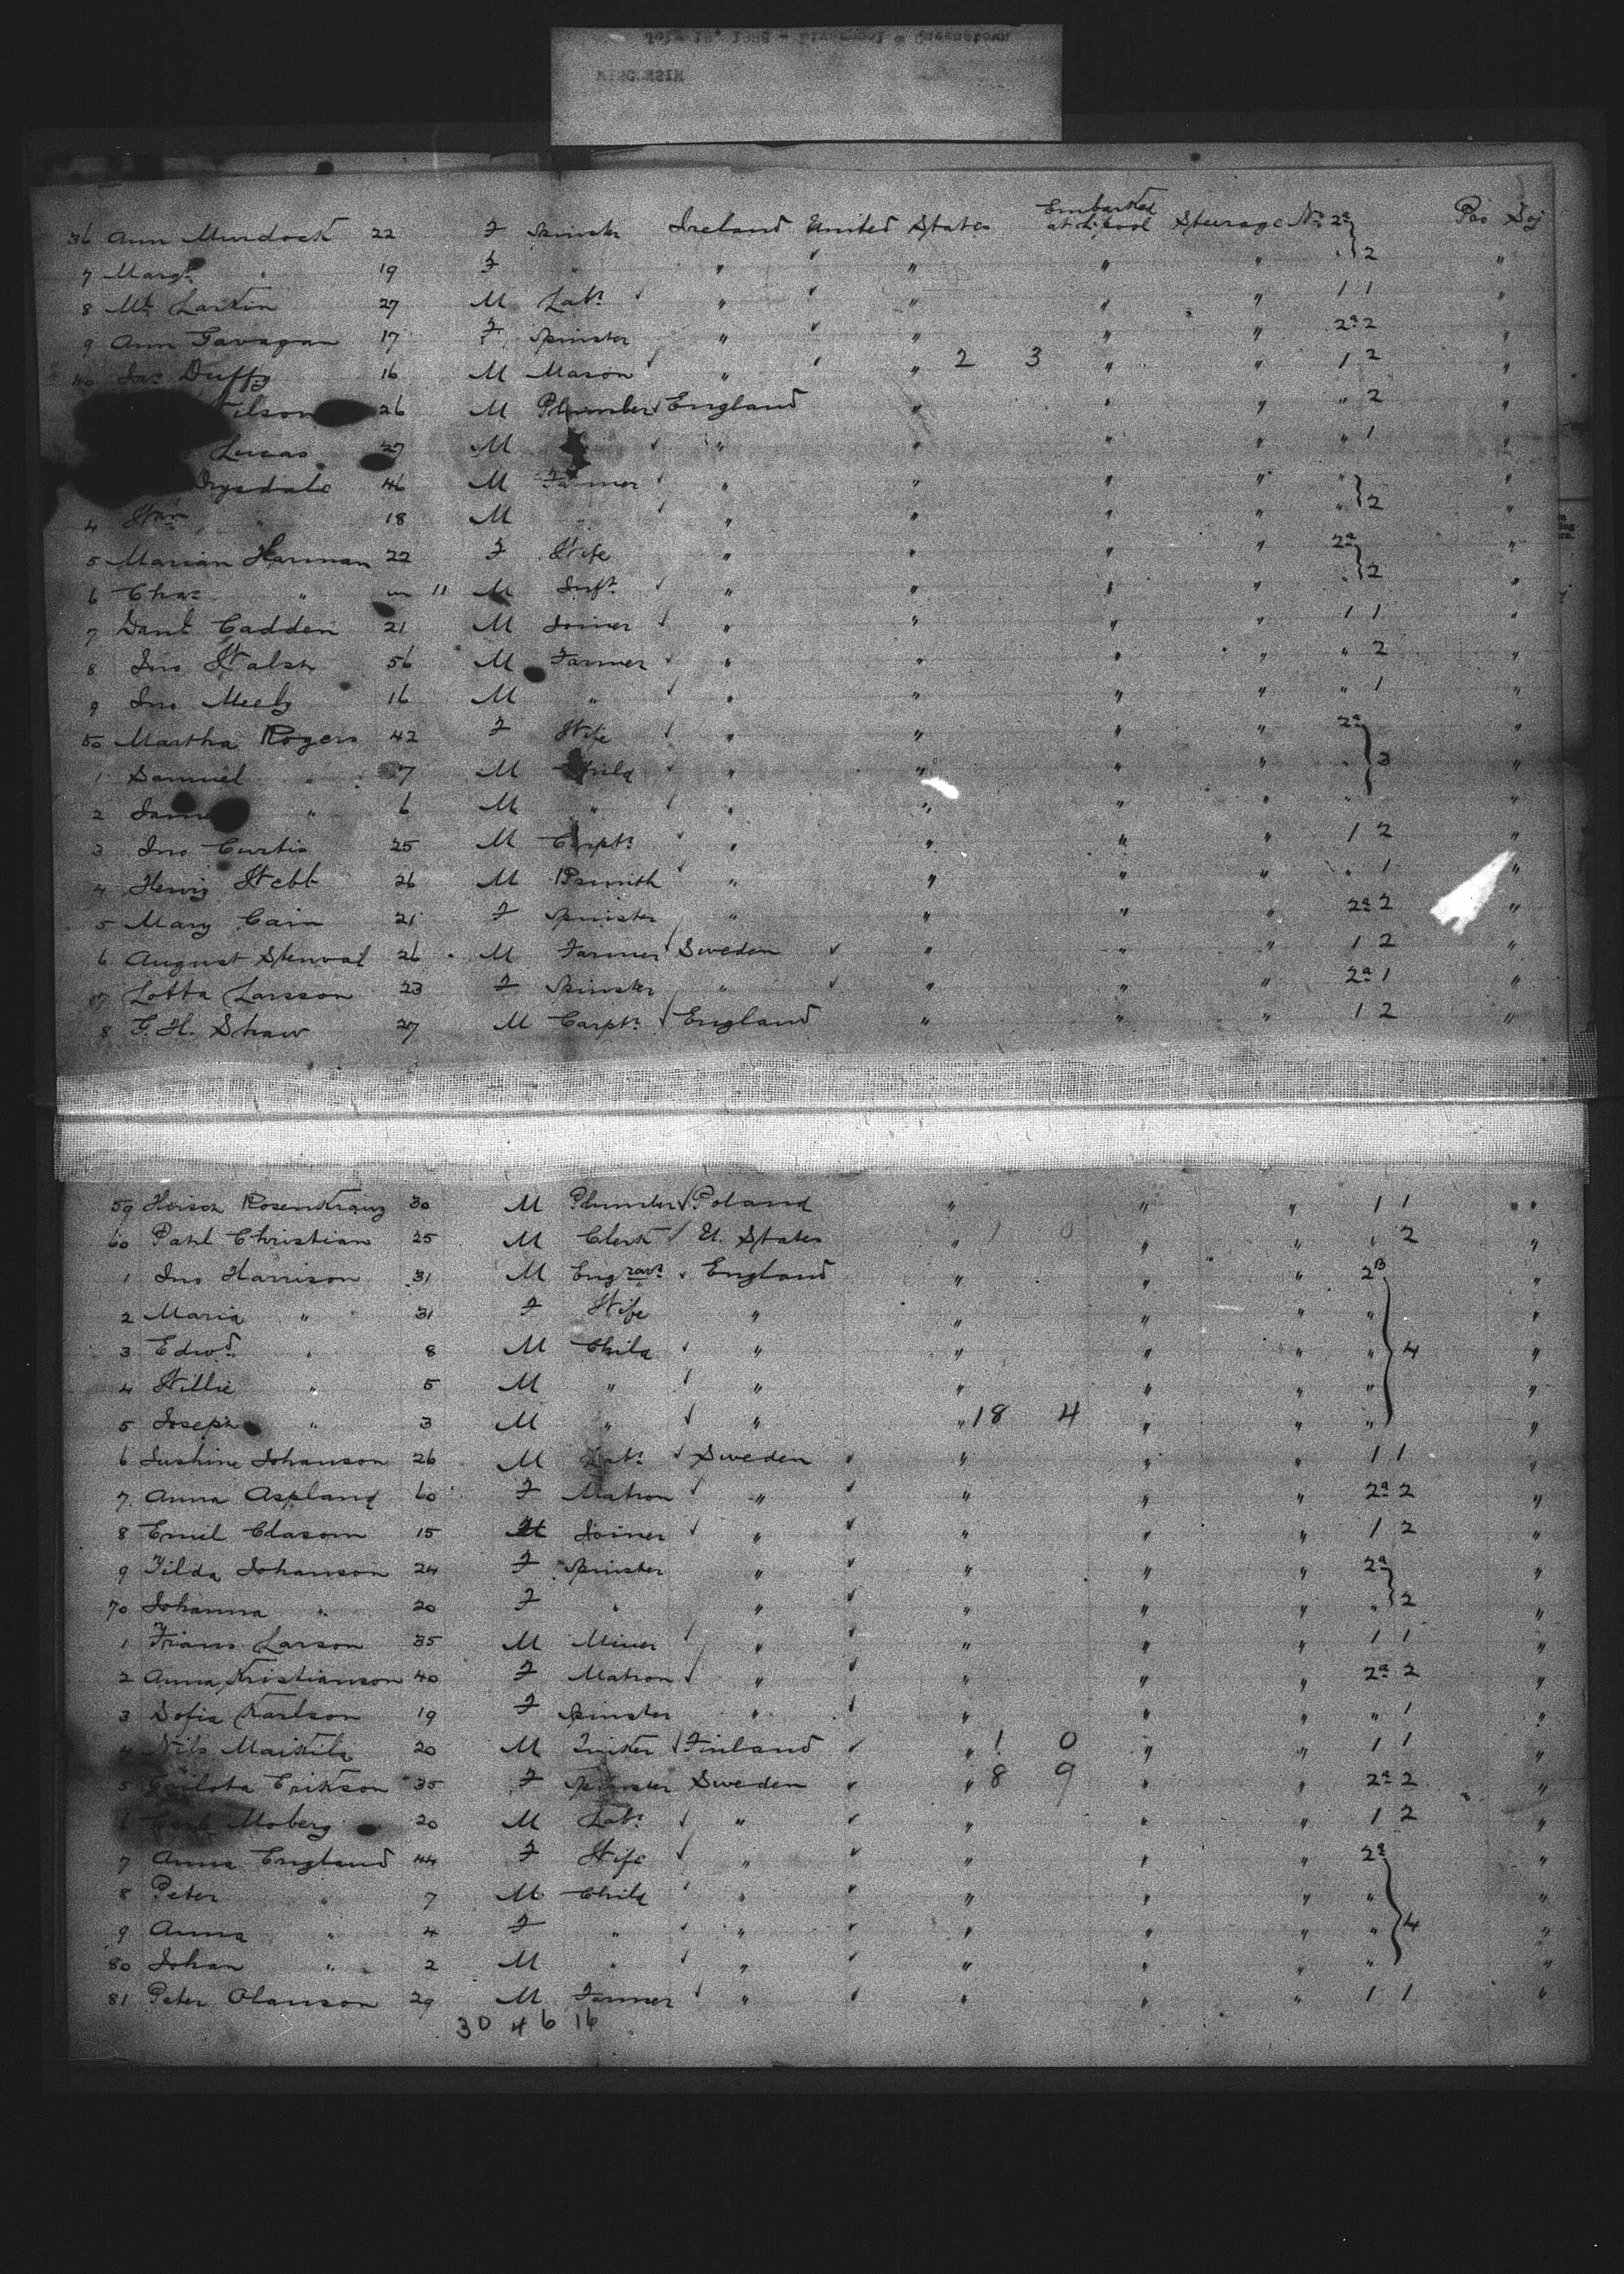 July 19, 1888 - Liverpool & Queenstown
WISCONSIN
Embarked
36 Ann Murdock 22 F Spinster Ireland United States at L'pool Steerage No 2a Pro Soj
7 Margt " 19 F " " " " " " } 2 "
8 Ml Larkin 27 M Labr " " " " 1 1 "
9 Ann Gavagan 17 F Spinster " " " " 2a 2 "
40 Jas Duffy 16 M Mason " " 2 3 " " 1 2 "
26 M Plumber England " " " " 2 "
Lucas 27 M " " " " " 1 "
Drysdale 46 M Farmer " " " " " "
4 Wm " 18 M " " " " " " } 2 "
5 Marian Harman 22 F Wife " " " " 2a "
6 Chas " 11 M Inft " " " " " } 2 "
7 Danl Cadden 21 M Joiner " " " " 1 1 "
8 Jno Walsh 56 M Farmer " " " " " 2 "
9 Jno 16 M " " " " " " 1 "
50 Martha Rogers 42 F Wife " " " " 2a "
1 Samuel " 7 M Child " " " " " } 3 "
2 James " 6 M " " " " " " "
3 Jno Curtis 25 M Carptr " " " " 1 2 "
4 Henry Webb 26 M Bsmith " " " " " 1 "
5 Mary Cain 21 F Spinster " " " " 2a 2 "
6 August Stenval 26 M Farmer Sweden " " " 1 2 "
7 Lotta Larsson 23 F Spinster " " " " 2a 1 "
8 F. H. Shaw 27 M Carptr England " " " 1 2 "
59 Hirsch Rosenkranz 30 M Plumber Poland " " " 1 1 "
60 Pahl Christian 25 M Clerk U. States " 1 0 " " " 2 "
1 Jno Harrison 31 M Engravr England " " " 2B "
2 Maria " 31 F Wife " " " " " "
3 Edwd " 8 M Child " " " " " } 4 "
4 Willie " 5 M " " " " " " "
5 Joseph " 3 M " " " 18 4 " " " "
6 Johanson 26 M Labr Sweden " " " 1 1 "
7 Anna Aspland 60 F Matron " " " " 2a 2 "
8 Emil Clasom 15 M Joiner " " " " 1 2 "
9 Tilda Johanson 24 F Spinster " " " " 2a "
70 Johanna " 20 F " " " " " " } 2 "
1 Frans Larson 35 M Miner " " " " 1 1 "
2 Anna Kristianson 40 F Matron " " " " 2a 2 "
3 Sofia Karlson 19 F Spinster " " " " " 1 "
4 Nils 20 M Finland " 1 0 " " 1 1 "
5 Erikson 35 F Spinster Sweden " 8 9 " " 2a 2 "
6 Moberg 20 M Labr " " " " 1 2 "
7 Anna England 44 F Wife " " " " 2a "
8 Peter " 7 M Child " " " " " "
9 Anna " 4 F " " " " " " } 4 "
80 Johan " 2 M " " " " " " "
81 Peter Olauson 29 M Farmer " " " " 1 1 "
30 46 16